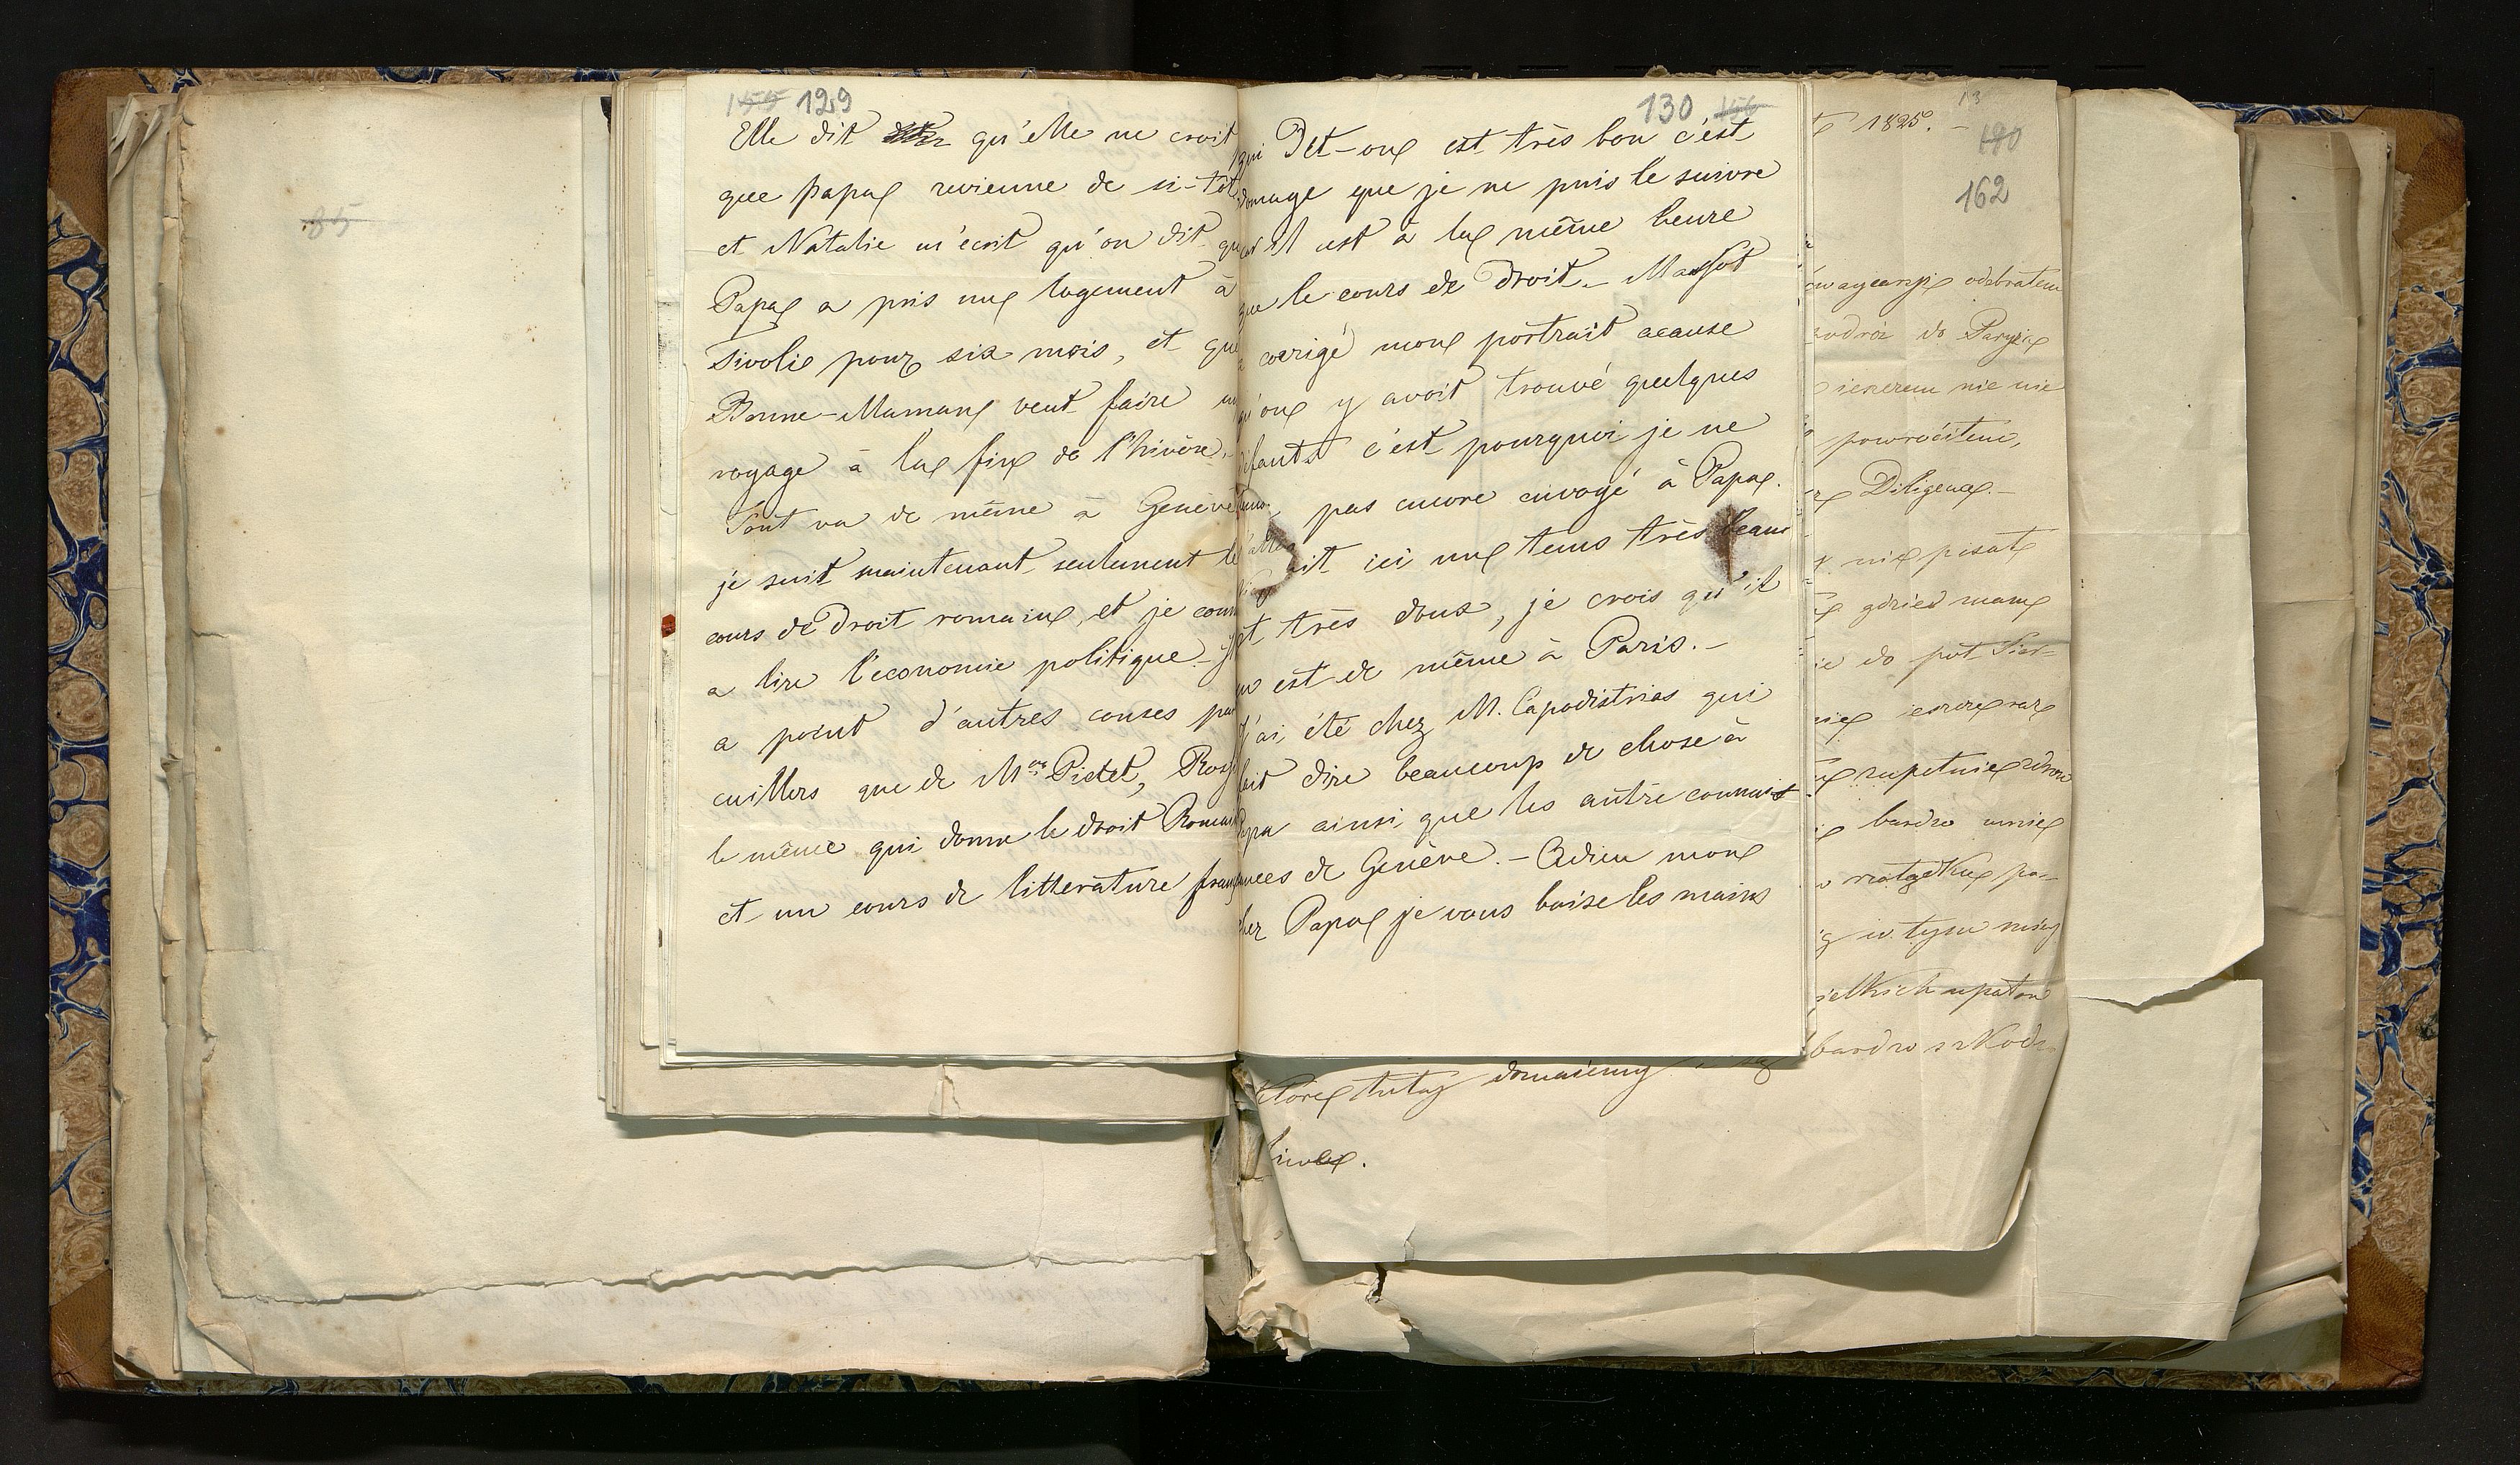 155 129
Elle dit qu'elle ne croit
que papa revienne de si-tôt
et Natalie m'ecrit qu'on dit que
Papa a pris un logement à
Tivolie pour six mois, et que
Bonne-Maman veut faire un
voyage à la fin de l'hivère.
Tout va de même à Genève
je suit maintenant seulement le
cours de Droit romain, et je com
a lire l'economie politique. - Il
a point d'autres courses par
cuillers que de Mrs Pictet, Rossi
le même qui donne le droit Romain
et un cours de litterature franç
130 156
qui Dit-on est très bon c'est
domage que je ne puis le suivre
car il est à la même heure
que le cours de Droit. - Massot
a corrigé mon portrait acause
qu'on y avoit trouvé quelques
defauts c'est pourquoi je ne
pas encore envoyé à Papa.
ait ici un tems très beau
et très doux, je crois qu'il
en est de même à Paris. -
J'ai été chez M. Capodistrias qui
fait dire beaucoup de chose à
Papa ainsi que les autre connais
ances de Genève. - Adieu mon
cher Papa je vous baise les mains
85
1825. -
13
180
162
odebrałem
podróż do Paryża
nie nie
powróciłem,
Diligence. -
nie pisał
gdzie mam
ie do pół
zupełnie zdrow
bardzo
w tym
bardzo szkod
które tutaj